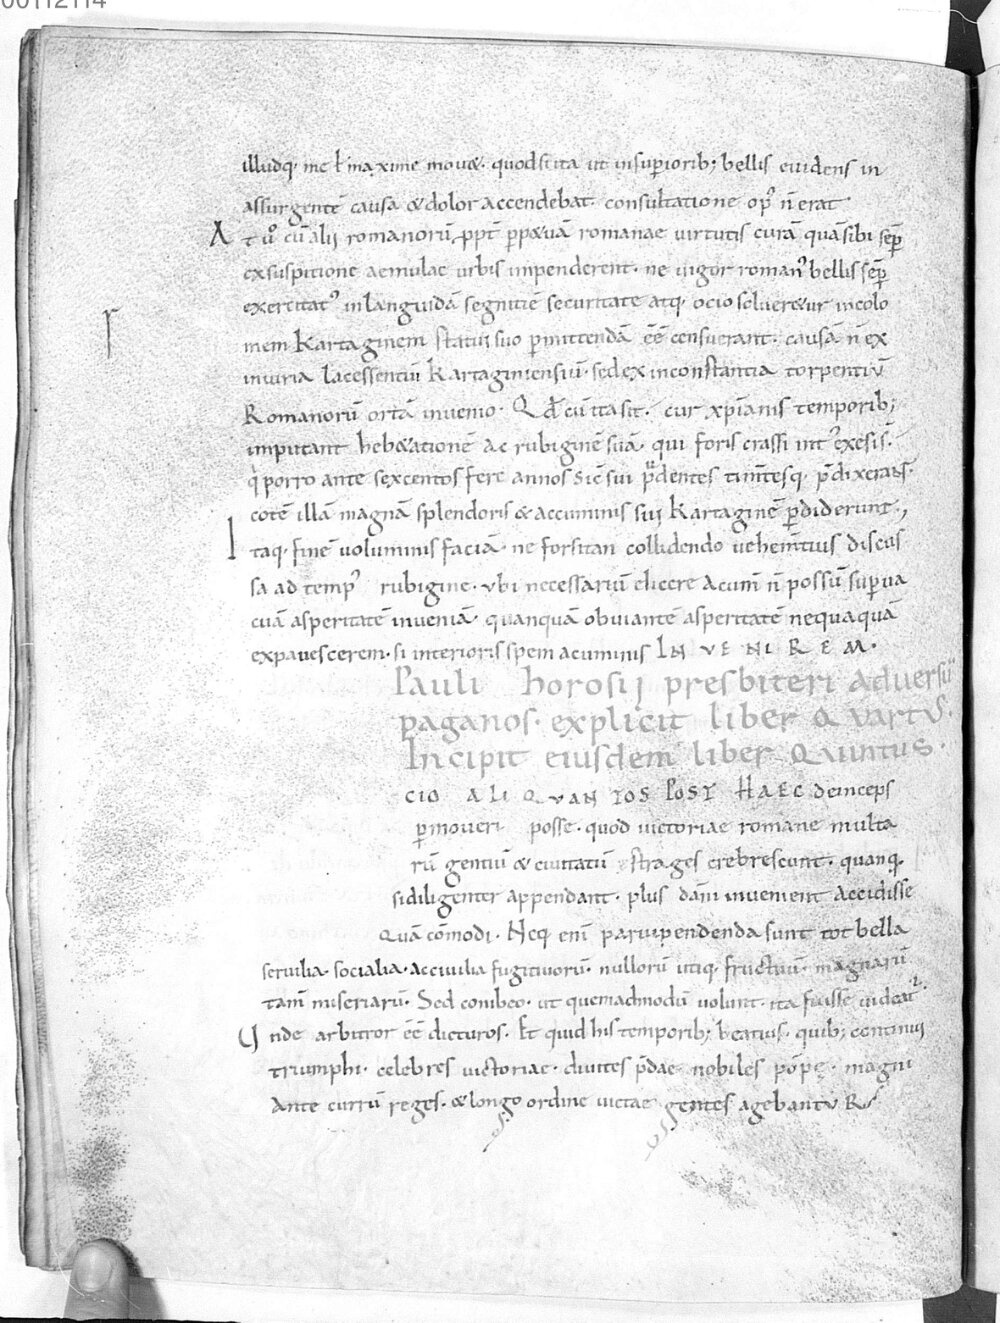 00112114
illudq· me ł maxime mouet· quod si ita ut in superiorib; bellis euidens in
assurgentē causa & dolor accendebat· consultatione op᾿ n̄ erat
At u͛o cū alij romanorū ppt̄ ppetuā romanae uirtutis curā quā sibi semp̄
ex suspitione aemulae urbis impenderent· ne uigor roman᾿ bellis semp̄
exercitat᾿ in languidā segnitiē securitate atq· ocio solueretur incolo
mem Kartaginem statui suo pmittendā ēē censuerant· causā n̄ ex
iniuria lacessentiū Kartaginiensiū· sed ex inconstantia torpentiū
Romanorū ortā inuenio· Qd̄ cū ita sit· cur xp̄ianis temporib;
imputant hebetationē ac rubiginē suā· qui foris crassi int᾿ exesi s̄·
qͥ porro ante sexcentos fere annos sic̄ sui pͣdentes tim̄tesq· p̄dixerant·
cotē illā magnā splendoris & accuminis sui Kartaginē pdiderunt·,
Itaq· finē uoluminis faciā· ne forsitan collidendo uehem̄tius discus
sa ad temp᾿ rubigine· ubi necessariū elicere acum̄ n̄ possū superua
cuā asperitatē inueniā· quanquā obuiantē asperitatē nequaquā
expauescerem· si interioris spem acuminis INVENIREM·
Pauli horosij presbiteri aduersū
paganos· explicit liber Quartus·
Incipit eiusdem liber Quintus·
CIO ALIQVANTOS POST HAEC deinceps
pmoueri posse· quod uictoriae romane multa
rū gentiū & ciuitatū strages crebrescunt· quanq·
si diligenter appendant· plus dam̄i inuenient accidisse
quā cōmodi· Neq enī paruipendenda sunt tot bella
seruilia· socialia· acciuilia fugitiuorū· nullorū utiq· fructuū· magnarū
tam̄ miseriarū· Sed conibeo· ut quemadmodū uolunt· ita fuisse uideat᾿·
Vnde arbitror ēē dicturos· Et quid his temporib; beatius· quib; continui
triumphi· celebres uictoriae· diuites p̄dae· nobiles pōpę· magni
ante currū reges· & longo ordine uictae gentes agebantur